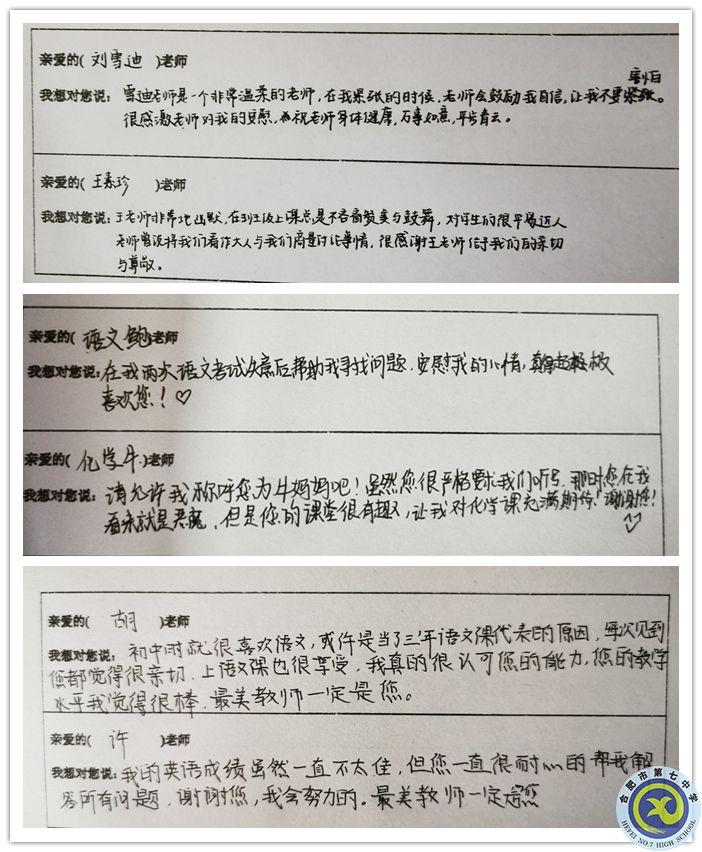 亲爱的( 刘雪迪 )老师
我想对您说: 雪迪老师是一个非常温柔的老师,在我紧张的时候,老师会鼓励我自信,让我不要紧张。
很感激老师对我的安慰, 祝老师身体健康,万事如意,平步青云。
亲爱的( 王素珍 )老师
我想对您说: 王老师非常地幽默,在班级上课总是不吝啬赞美与鼓舞,对学生们很平易近人
老师曾说将我们看作大人与我们商量讨论事情,很感谢王老师给予我们的亲切
与尊敬。
亲爱的( 语文鲍 )老师
我想对您说: 在我两次语文考试失意后帮助我寻找问题,安慰我的心情,
喜欢您!♡
亲爱的( 化学牛 )老师
我想对您说: 请允许我称呼您为牛妈妈吧!虽然您很严格要求我们听写,那时您在我
看来就是恶魔,但是您的课堂很有趣,让我对化学课充满期待,谢谢您!
亲爱的( 胡 )老师
我想对您说: 初中时就很喜欢语文,或许是当了三年语文课代表的原因,每次见到
您都觉得很亲切,上语文课也很享受,我真的很认可您的能力,您的教学
水平我觉得很棒,最美教师一定是您。
亲爱的( 许 )老师
我想对您说: 我的英语成绩虽然一直不太佳,但您一直很耐心的帮我解
答所有问题,谢谢您,我会努力的。最美教师一定是您
合肥市第七中学
HEFEI NO.7 HIGH SCHOOL